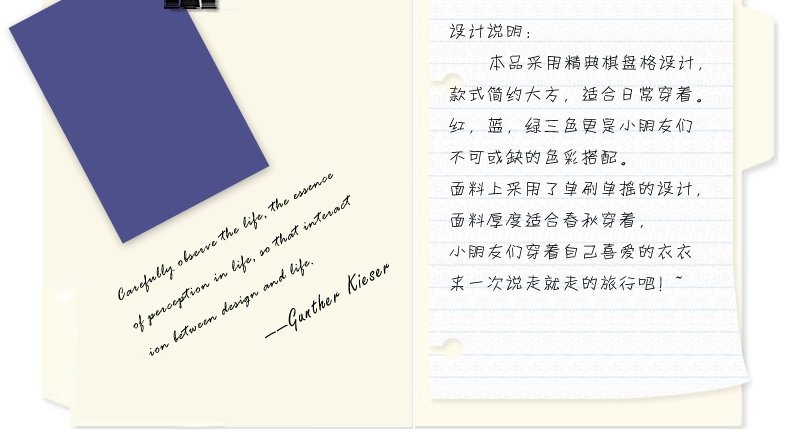 Carefully observe the life, the essence
of perception in life, so that interact
ion between design and life.
——Gunther Kieser
设计说明：
本品采用精典棋盘格设计，
款式简约大方，适合日常穿着。
红，蓝，绿三色更是小朋友们
不可或缺的色彩搭配。
面料上采用了单刷单摇的设计，
面料厚度适合春秋穿着，
小朋友们穿着自己喜爱的衣衣
来一次说走就走的旅行吧！~